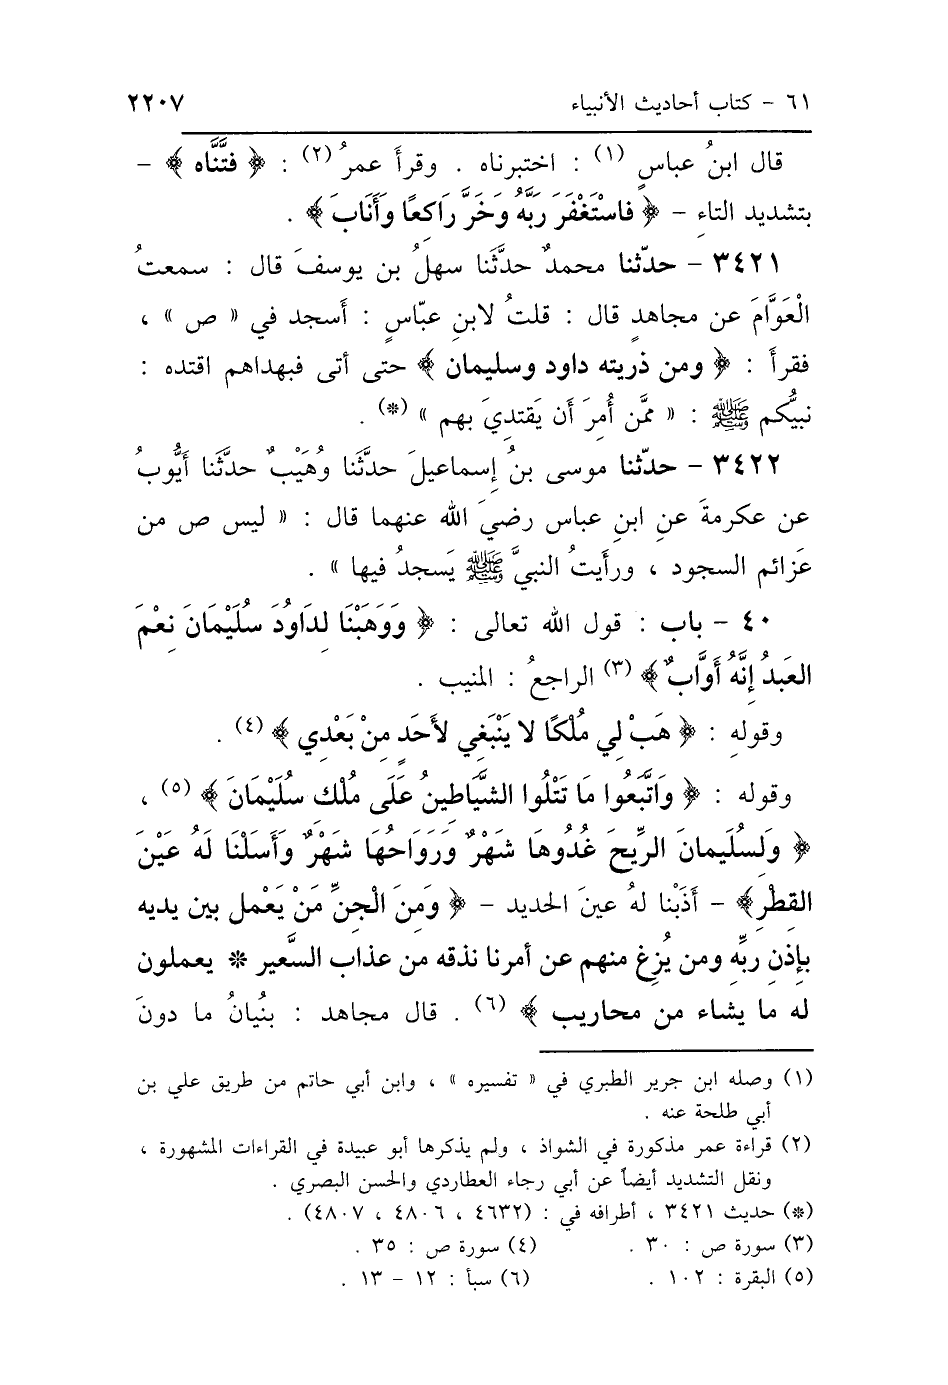 ٦١ - كتاب أحاديث الأنبياء ٢٢٠٧
قال ابنُ عباسٍ (١) : اختبرناه . وقرأَ عمرُ (٢) : ﴿ فتَّنَّاه ﴾ –
بتشديد التاءِ – ﴿ فاسْتَغْفَرَ رَبَّهُ وَخَرَّ رَاكِعًا وَأَنَابَ ﴾ .
٣٤٢١ – حدّثنا محمدٌ حدَّثَنا سهلُ بن يوسفَ قال : سمعتُ
الْعَوَّامَ عن مجاهدٍ قال : قلتُ لابنِ عبّاسٍ : أَسجد في « ص » ،
فقرأَ : ﴿ ومن ذريته داود وسليمان ﴾ حتى أتى فبهداهم اقتده :
نبيُّكم ﷺ : « ممَّن أُمِرَ أن يَقتدِيَ بهم » (*) .
٣٤٢٢ – حدّثنا موسى بنُ إسماعيلَ حدَّثَنا وُهَيْبٌ حدَّثَنا أَيُّوبُ
عن عكرمةَ عنِ ابنِ عباس رضيَ الله عنهما قال : « ليس ص من
عَزائم السجود ، ورأَيتُ النبيَّ ﷺ يَسجدُ فيها » .
٤٠ – باب : قول الله تعالى : ﴿ وَوَهَبْنَا لِدَاوُدَ سُلَيْمَانَ نِعْمَ
العَبدُ إنَّهُ أَوَّابٌ ﴾ (٣) الراجعُ : المنيب .
وقولهِ : ﴿ هَبْ لِي مُلْكًا لا يَنْبَغِي لأَحَدٍ مِنْ بَعْدِي ﴾ (٤) .
وقوله : ﴿ وَاتَّبَعُوا مَا تَتْلُوا الشَّيَاطِينُ عَلَى مُلْكِ سُلَيْمَانَ ﴾ (٥) ،
﴿ وَلِسُلَيمانَ الرِّيحَ غُدُوهَا شَهْرٌ وَرَوَاحُهَا شَهْرٌ وَأَسَلْنَا لَهُ عَيْنَ
القِطْرِ﴾ – أَذَبْنا لهُ عينَ الحديد – ﴿ وَمِنَ الْجِنِّ مَنْ يَعْمل بين يديه
بإذنِ ربِّهِ ومن يُزِغ منهم عن أمرنا نذقه من عذاب السَّعير * يعملون
له ما يشاء من محاريب ﴾ (٦) . قال مجاهد : بنُيانُ ما دونَ
(١) وصله ابن جرير الطبري في « تفسيره » ، وابن أبي حاتم من طريق علي بن
أبي طلحة عنه .
(٢) قراءة عمر مذكورة في الشواذ ، ولم يذكرها أبو عبيدة في القراءات المشهورة ،
ونقل التشديد أيضاً عن أبي رجاء العطاردي والحسن البصري .
(*) حديث ٣٤٢١ ، أطرافه في : (٤٦٣٢ ، ٤٨٠٦ ، ٤٨٠٧) .
(٣) سورة ص : ٣٠ . (٤) سورة ص : ٣٥ .
(٥) البقرة : ١٠٢ . (٦) سبأ : ١٢ – ١٣ .